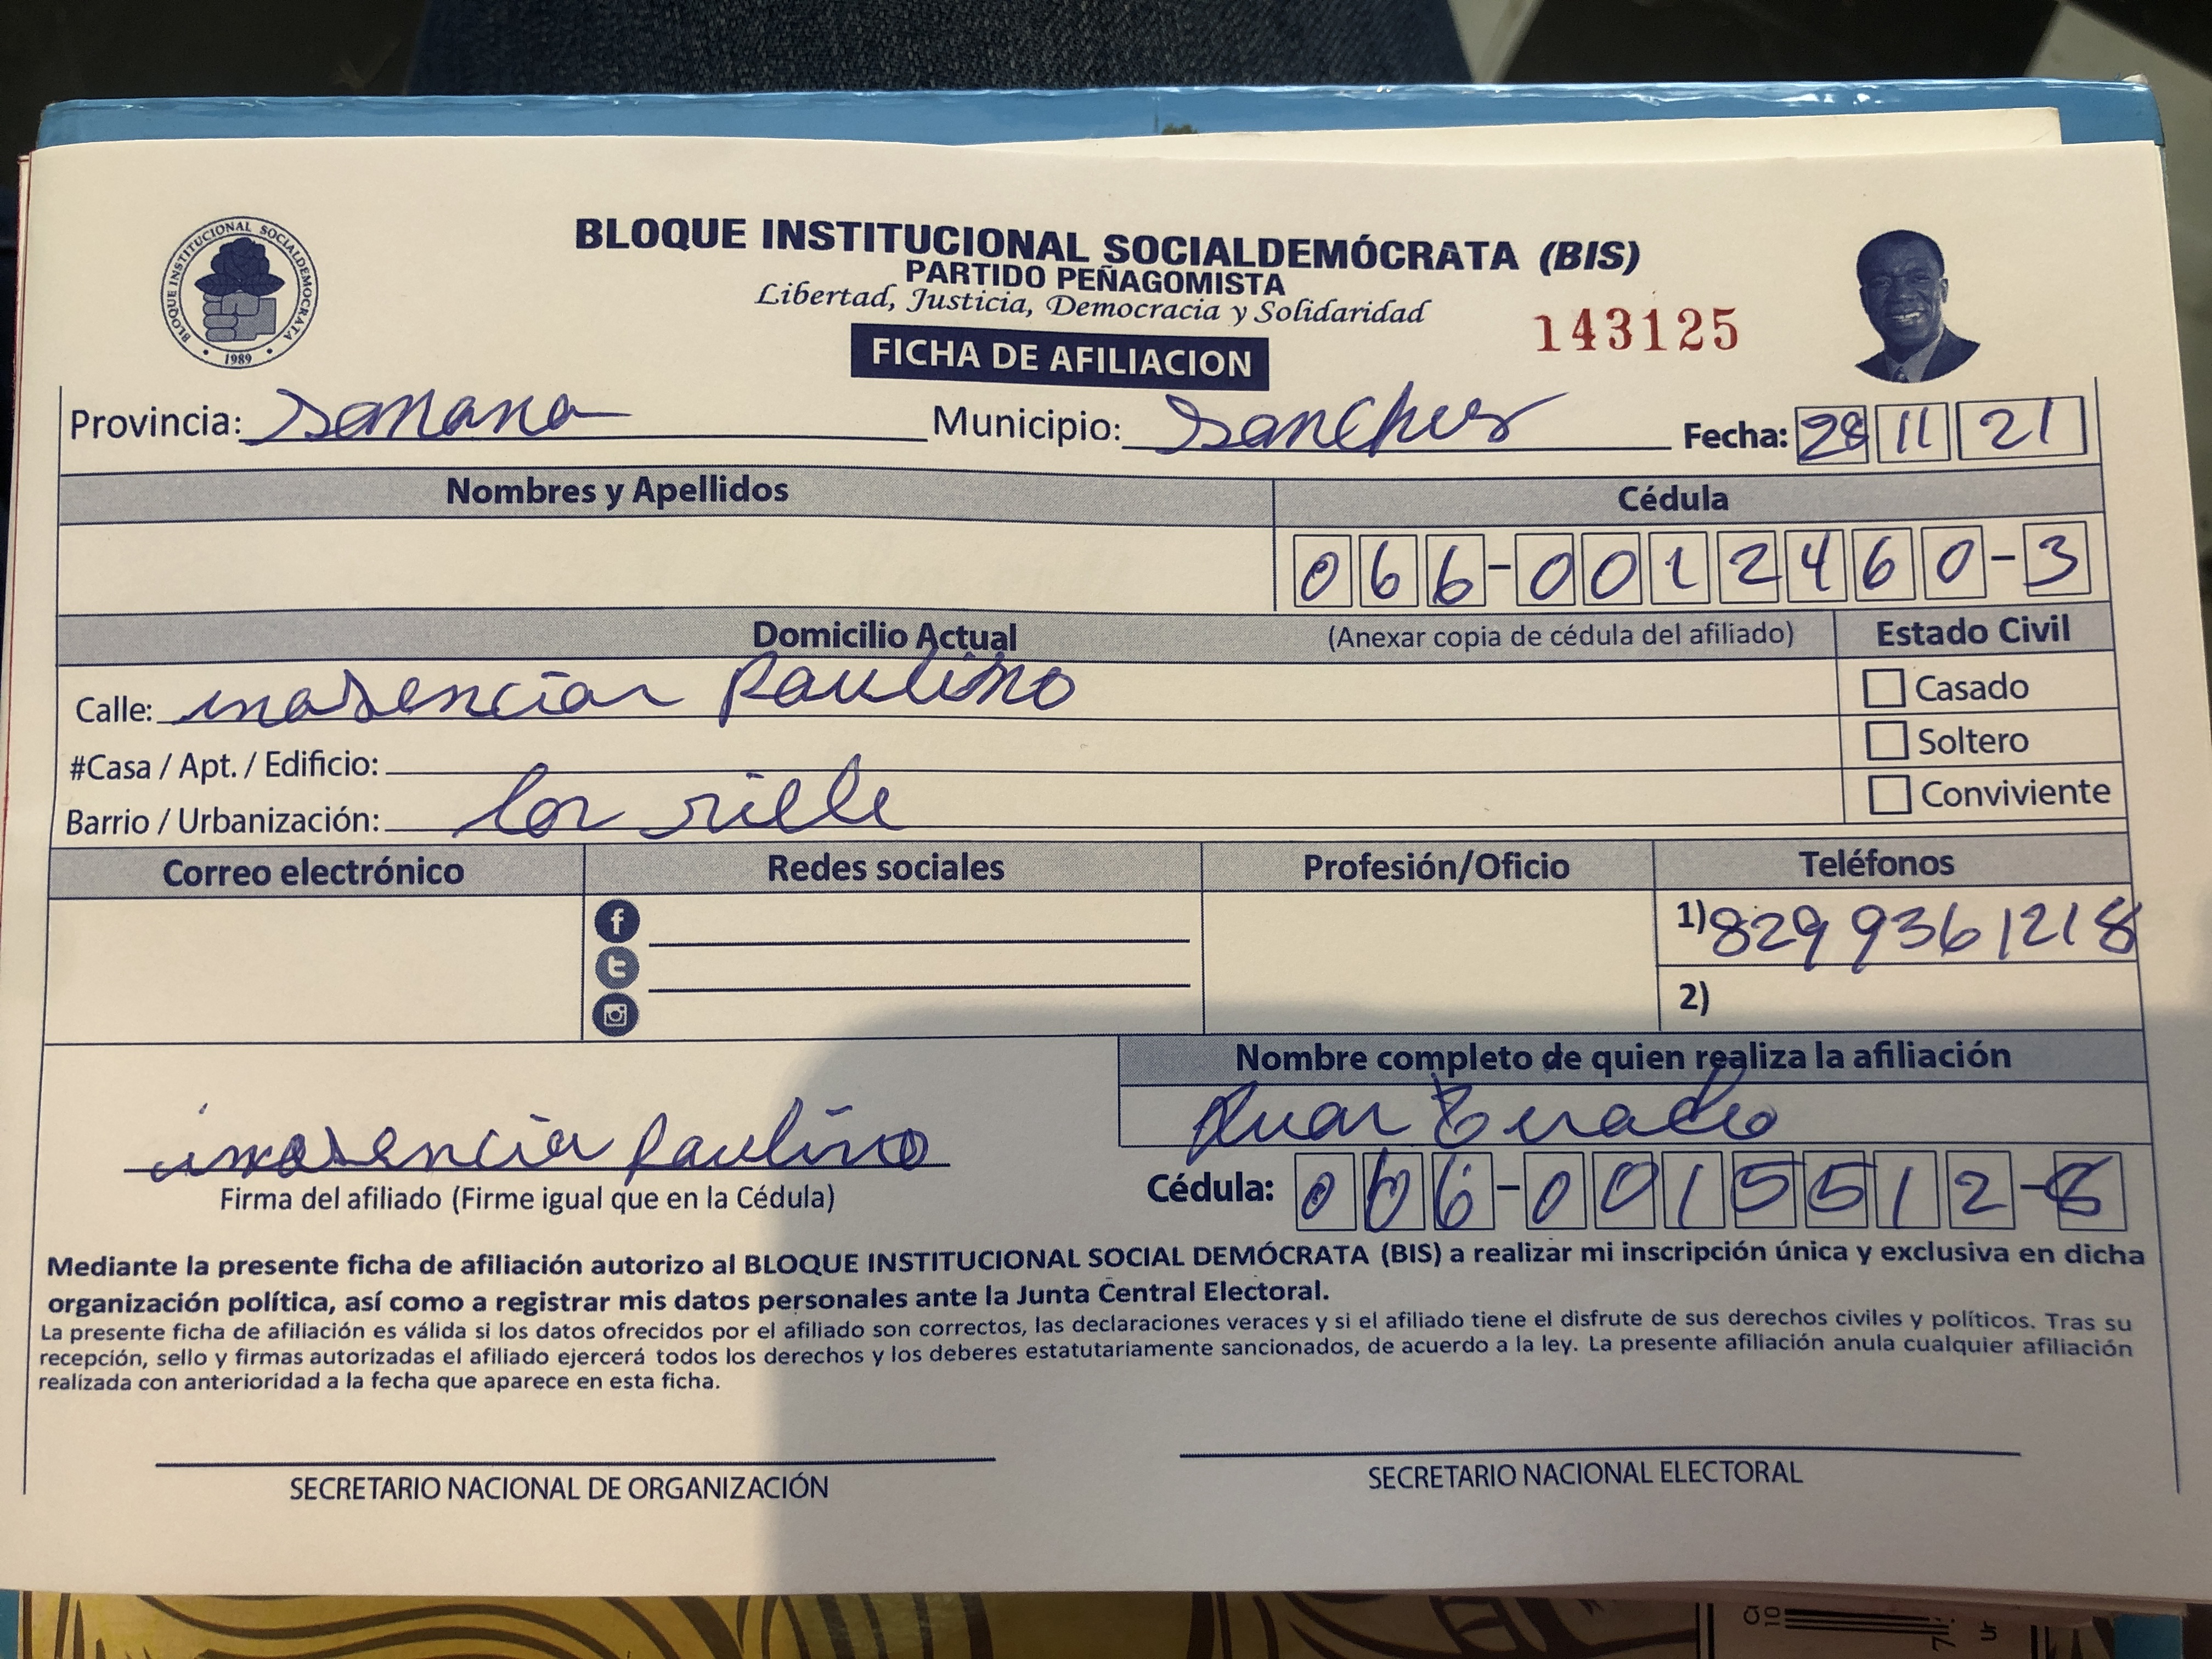 BLOQUE INSTITUCIONAL SOCIALDEMOCRATA
1989
BLOQUE INSTITUCIONAL SOCIALDEMÓCRATA (BIS)
PARTIDO PEÑAGOMISTA
Libertad, Justicia, Democracia y Solidaridad
143125
FICHA DE AFILIACION
Provincia: Samana Municipio: Sanchez Fecha: 28 11 21
Nombres y Apellidos Cédula
066-0012460-3
Domicilio Actual (Anexar copia de cédula del afiliado) Estado Civil
Calle: inosencia Paulino Casado
#Casa / Apt. / Edificio: Soltero
Barrio / Urbanización: Conviviente
Correo electrónico Redes sociales Profesión/Oficio Teléfonos
1) 829 936 1218
2)
Nombre completo de quien realiza la afiliación
inosencia paulino
Firma del afiliado (Firme igual que en la Cédula) Cédula: 066-0015512-8
Mediante la presente ficha de afiliación autorizo al BLOQUE INSTITUCIONAL SOCIAL DEMÓCRATA (BIS) a realizar mi inscripción única y exclusiva en dicha
organización política, así como a registrar mis datos personales ante la Junta Central Electoral.
La presente ficha de afiliación es válida si los datos ofrecidos por el afiliado son correctos, las declaraciones veraces y si el afiliado tiene el disfrute de sus derechos civiles y políticos. Tras su
recepción, sello y firmas autorizadas el afiliado ejercerá todos los derechos y los deberes estatutariamente sancionados, de acuerdo a la ley. La presente afiliación anula cualquier afiliación
realizada con anterioridad a la fecha que aparece en esta ficha.
SECRETARIO NACIONAL DE ORGANIZACIÓN SECRETARIO NACIONAL ELECTORAL